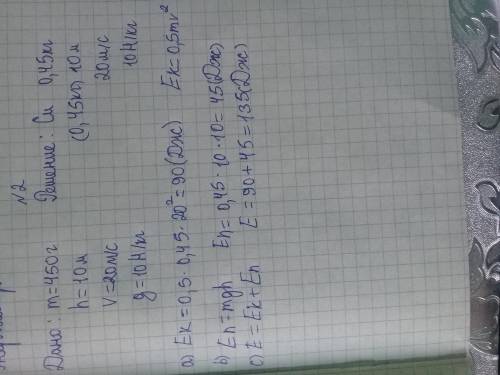 №2
Дано: m=450г Решение: Си 0,45кг
h=10м (0,45кг) 10м
V=20м/с 20м/с
g=10Н/кг 10Н/кг
a) Eк=0,5·0,45·20²=90(Дж) Eк=0,5mv²
b) Eп=mgh Eп=0,45·10·10=45(Дж)
c) E=Eк+Eп E=90+45=135(Дж)